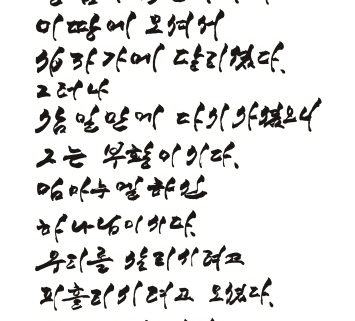 이 땅에 오셔서
십자가에 달리셨다.
그러나
삼일만에 다시 사셨으니
그는 부활이시다.
임마누엘 하신
하나님이시다.
우리를 살리시려고
피흘리시려고 오셨다.